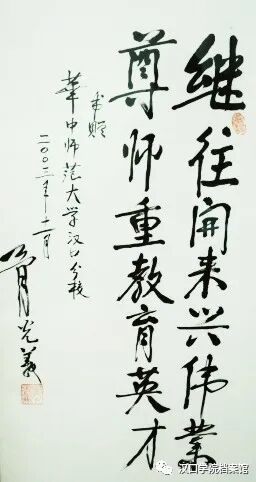 继往开来兴伟业
尊师重教育英才
赠
華中师范大学汉口分校
二〇〇三年十一月
光義
汉口学院档案馆